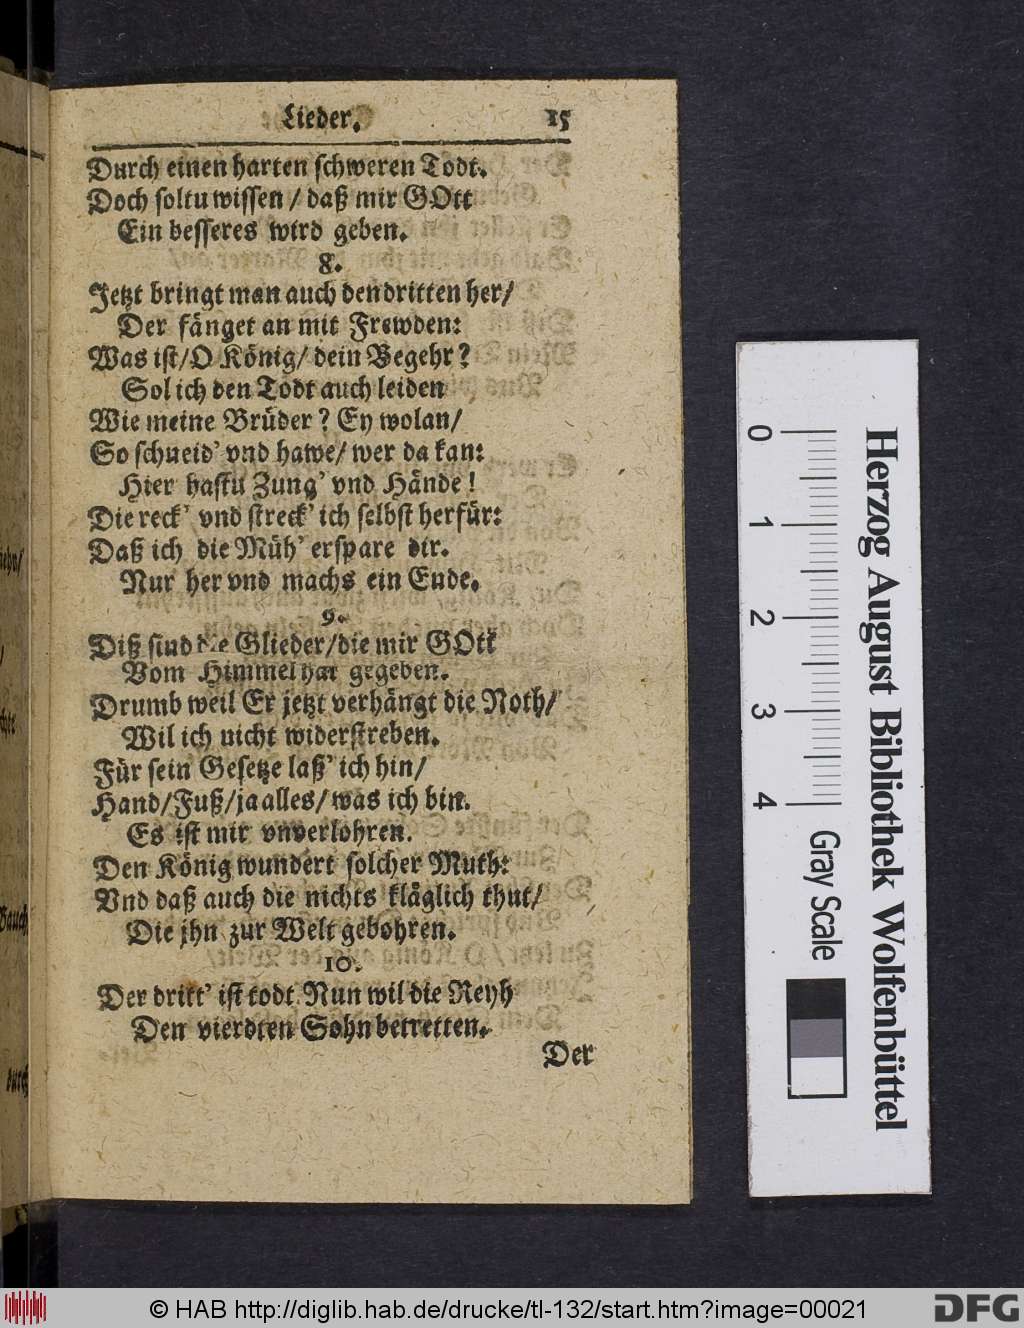 Lieder. 15
Durch einen harten schweren Todt.
Doch soltu wissen / daß mir GOtt
Ein besseres wird geben.
8.
Jetzt bringt man auch den dritten her/
Der fänget an mit Frewden:
Was ist/ O König/ dein Begehr?
Sol ich den Todt auch leiden
Wie meine Brüder? Ey wolan/
So schneid' vnd hawe/ wer da kan:
Hier hastu Zung' vnd Hände!
Die reck' vnd streck' ich selbst herfür:
Daß ich die Müh' erspare dir.
Nur her vnd machs ein Ende.
9.
Diß sind die Glieder/die mir GOtt
Vom Himmel hat gegeben.
Drumb weil Er jetzt verhängt die Noth/
Wil ich nicht widerstreben.
Für sein Gesetze laß' ich hin/
Hand/Fuß/ja alles/ was ich bin.
Es ist mir vnverlohren.
Den König wundert solcher Muth:
Vnd daß auch die nichts kläglich thut/
Die jhn zur Welt gebohren.
10.
Der dritt' ist todt. Nun wil die Reyh
Den vierdten Sohn betretten.
Der
0 1 2 3 4
Gray Scale
Herzog August Bibliothek Wolfenbüttel
© HAB http://diglib.hab.de/drucke/tl-132/start.htm?image=00021
DFG